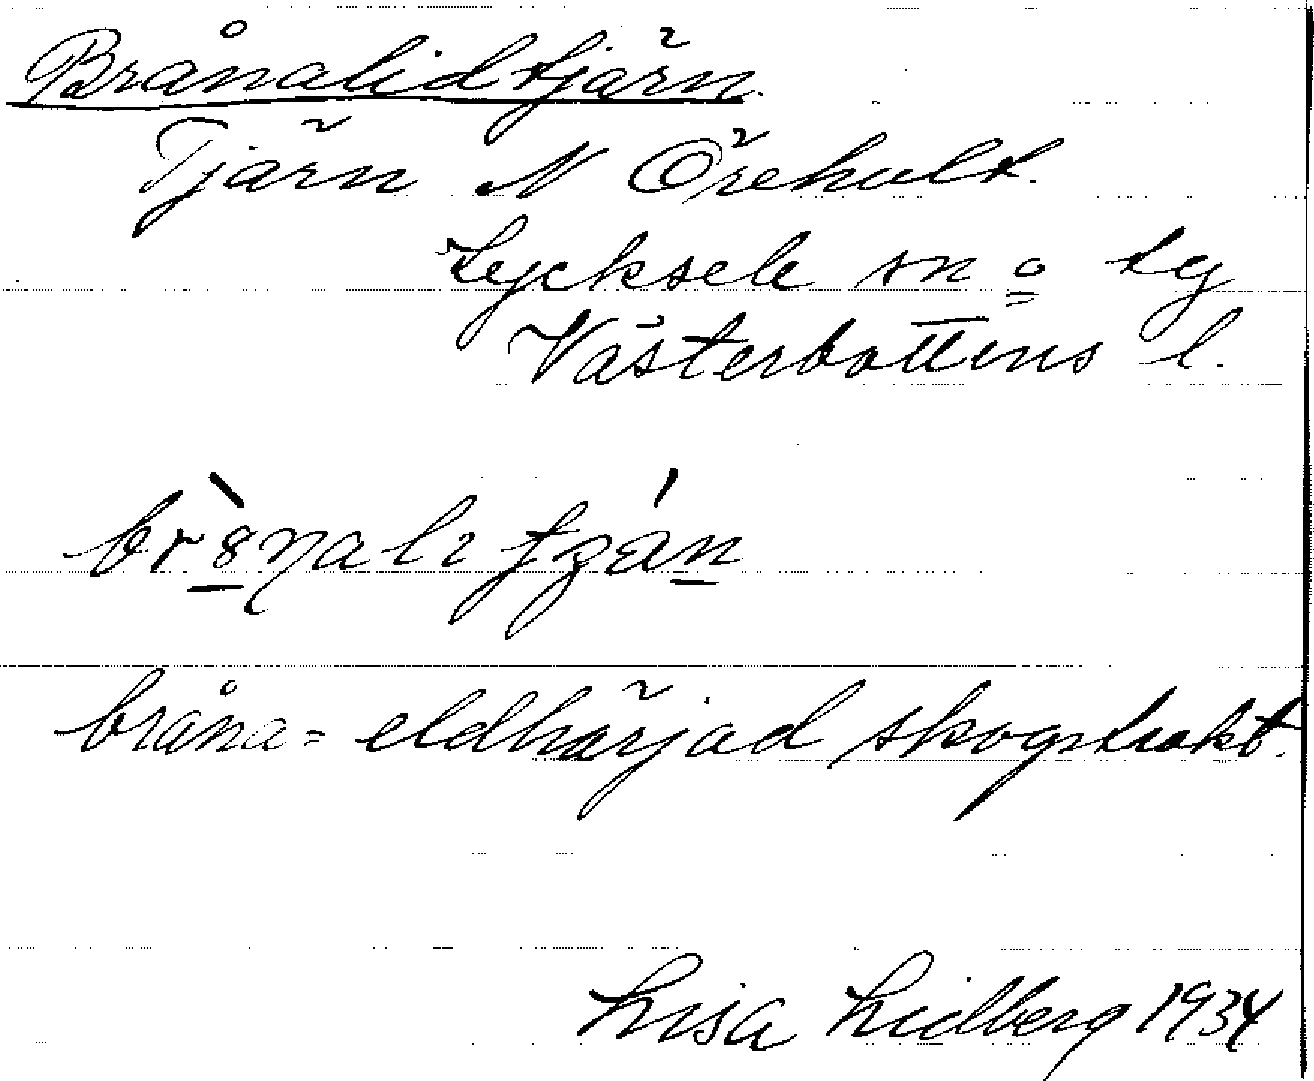 Brånalidtjärn.
Tjärn N Öreholt.
Lycksele sn o tg
Västerbottens l.
bråna = eldhärjad skogstrakt.
Lisa Lidberg 1934